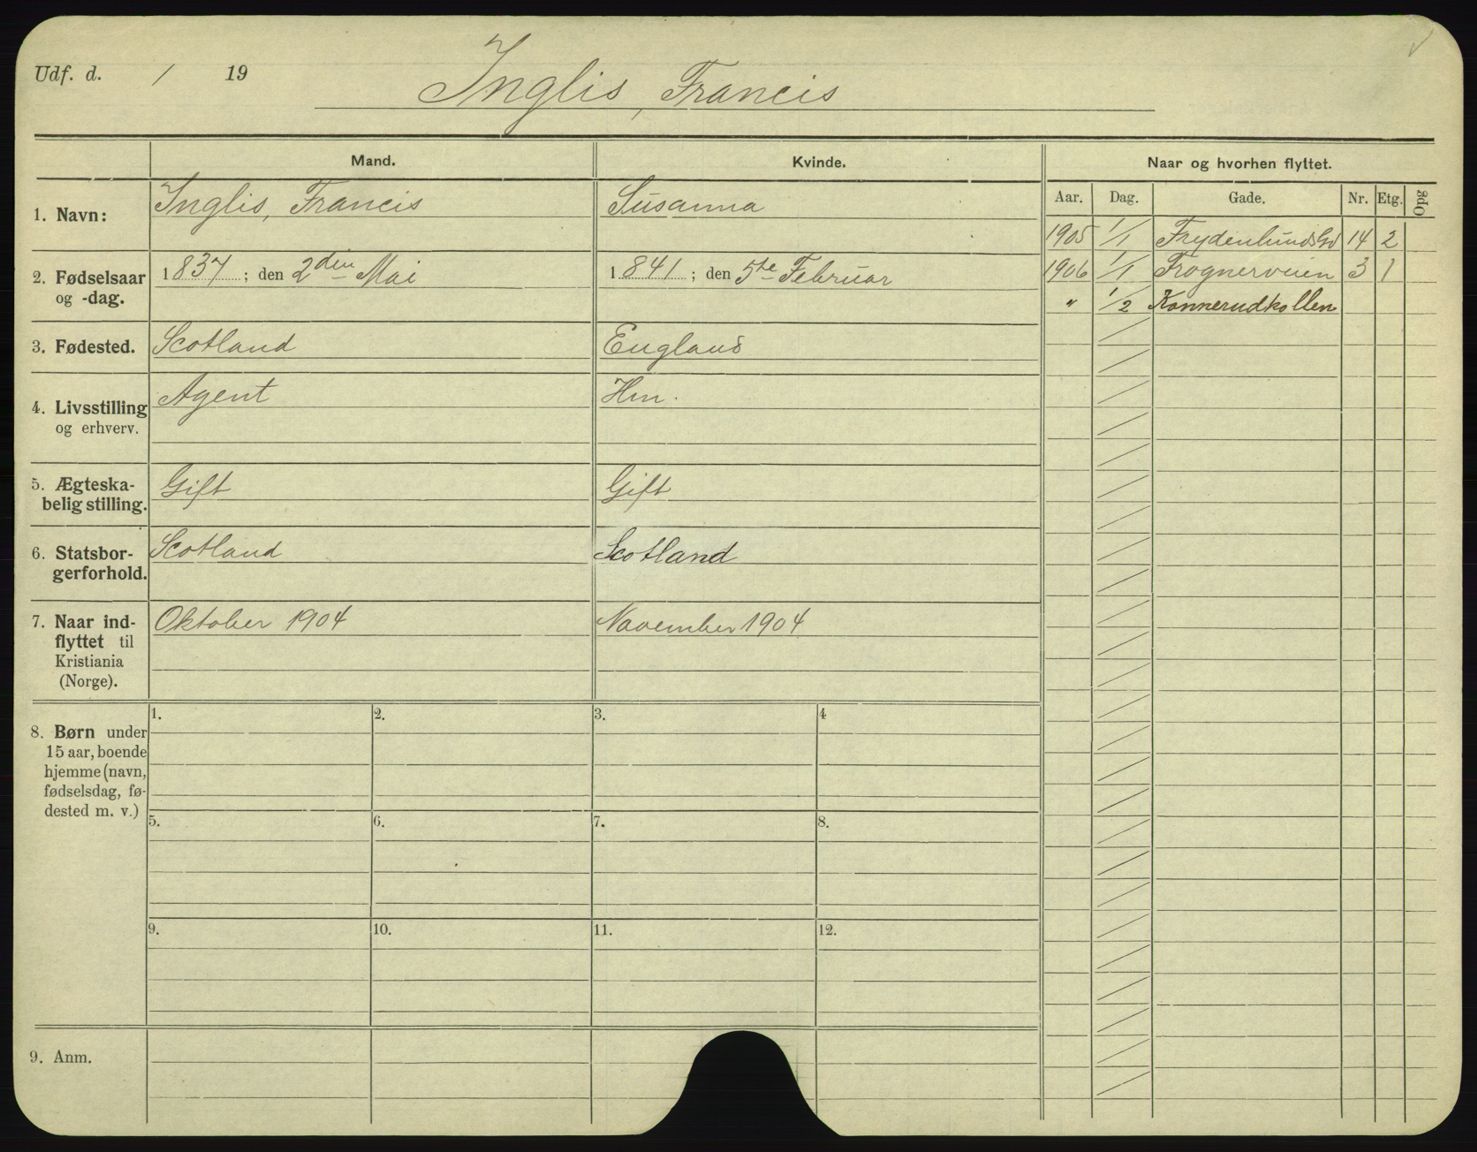 Udf. d. / 19
Inglis, Francis
Mand.
Kvinde.
Naar og hvorhen flyttet.
Aar. Dag. Gade. Nr. Etg. Opg
1. Navn: Inglis, Francis Susanna
1905 1/1 FrydenlundsGd 14 2
2. Fødselsaar og -dag. 1837; den 2den Mai 1841; den 5te Februar
1906 1/1 Frognerveien 3 1
" 1/2 Konnerudkollen
3. Fødested. Scotland England
4. Livsstilling og erhverv. Agent Hm.
5. Ægteska-
belig stilling. Gift Gift
6. Statsbor-
gerforhold. Scotland Scotland
7. Naar ind-
flyttet til
Kristiania
(Norge). Oktober 1904 November 1904
8. Børn under
15 aar, boende
hjemme (navn,
fødselsdag, fø-
dested m. v.)
1. 2. 3. 4
5. 6. 7. 8.
9. 10. 11. 12.
9. Anm.